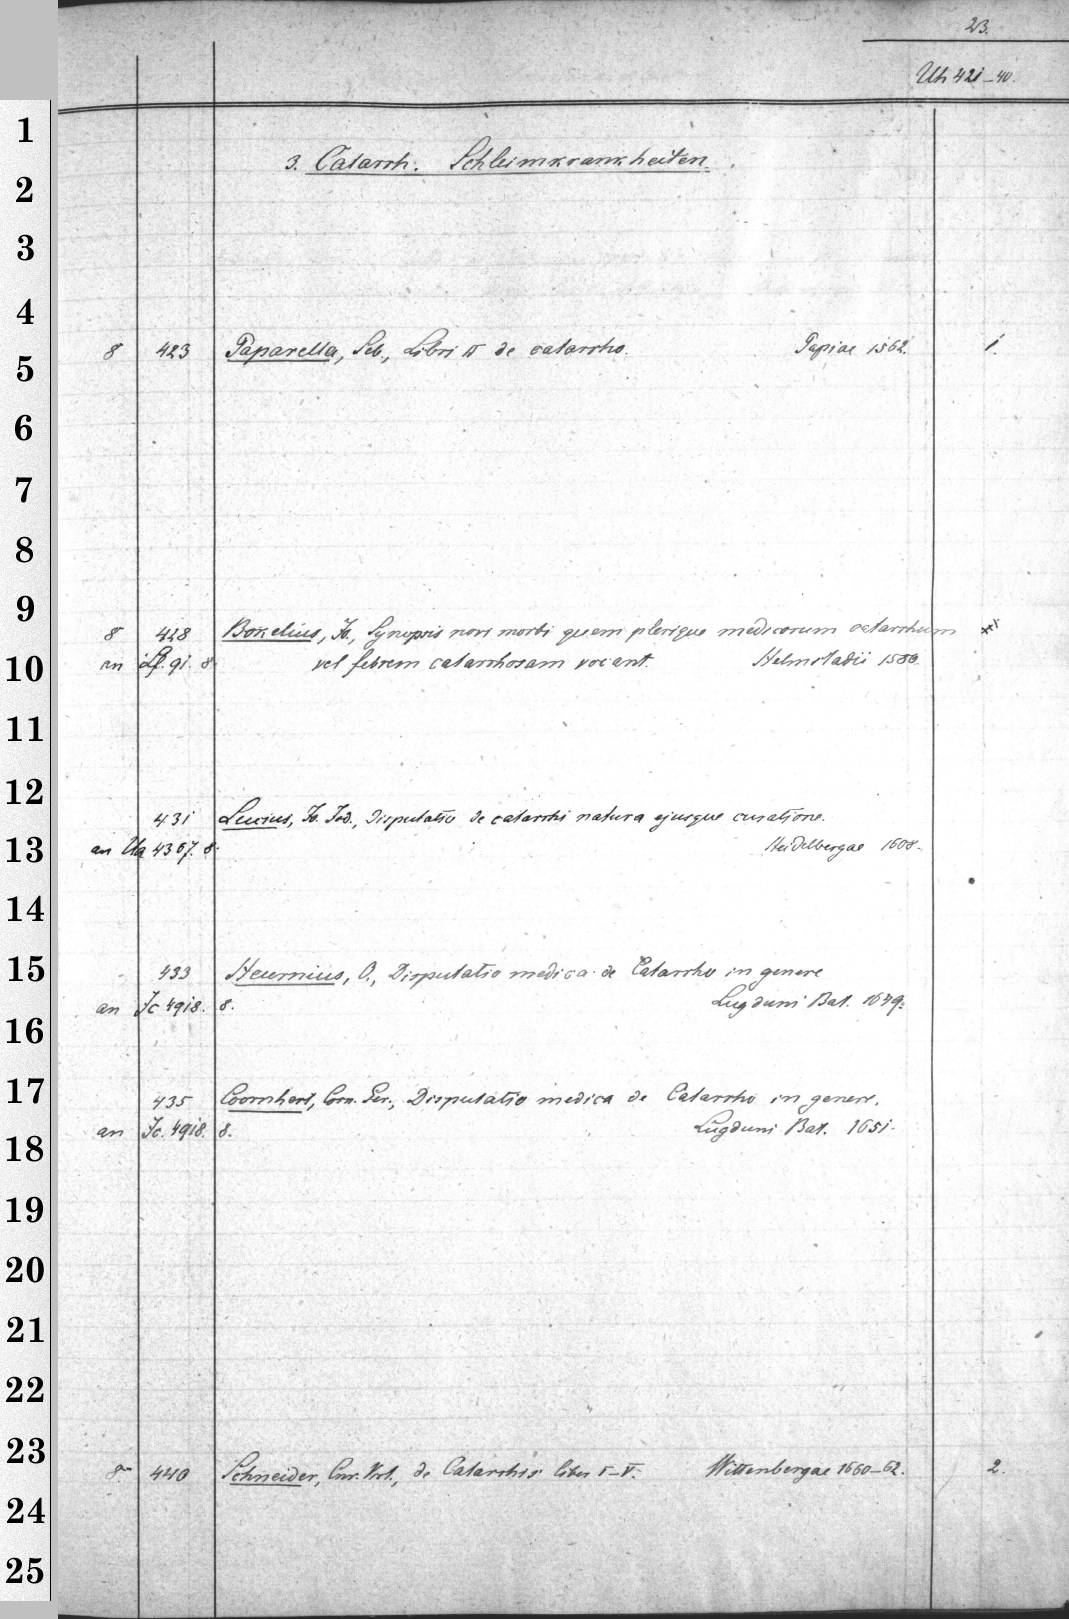 23.
Uh 421-40.
3. Catarrh. Schleimkrankheiten.
8 423 Paparella, Seb., Libri II de catarrho. Papiae 1562. 1.
8 428 Bokelius, Jo., Synopsis novi morbi quem plerique medicorum catarrhum
an 91. 8 vel febrem catarrhosam vocant. Helmstadii 1580
431 Lucius, Jo. Jod., Disputatio de catarrhi natura ejusque curatione.
an Ua 4367. 8. Heidelbergae 1608.
433 Heurnius, O., Disputatio medica de Catarrho in genere
an Jc 4918. 8. Lugduni Bat. 1649.
435 Coornhert, Corn. Ger., Disputatio medica de Catarrho in genere.
an Jc. 4918. 8. Lugduni Bat. 1651.
8. 440 Schneider, Cnr. Vict., de Catarrhis liber I-V. Wittenbergae 1660-62. 2.
1
2
3
4
5
6
7
8
9
10
11
12
13
14
15
16
17
18
19
20
21
22
23
24
25